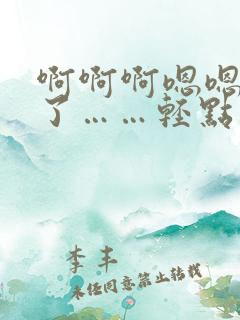 啊啊啊嗯嗯
了……輕點
李丰
未经同意禁止转载